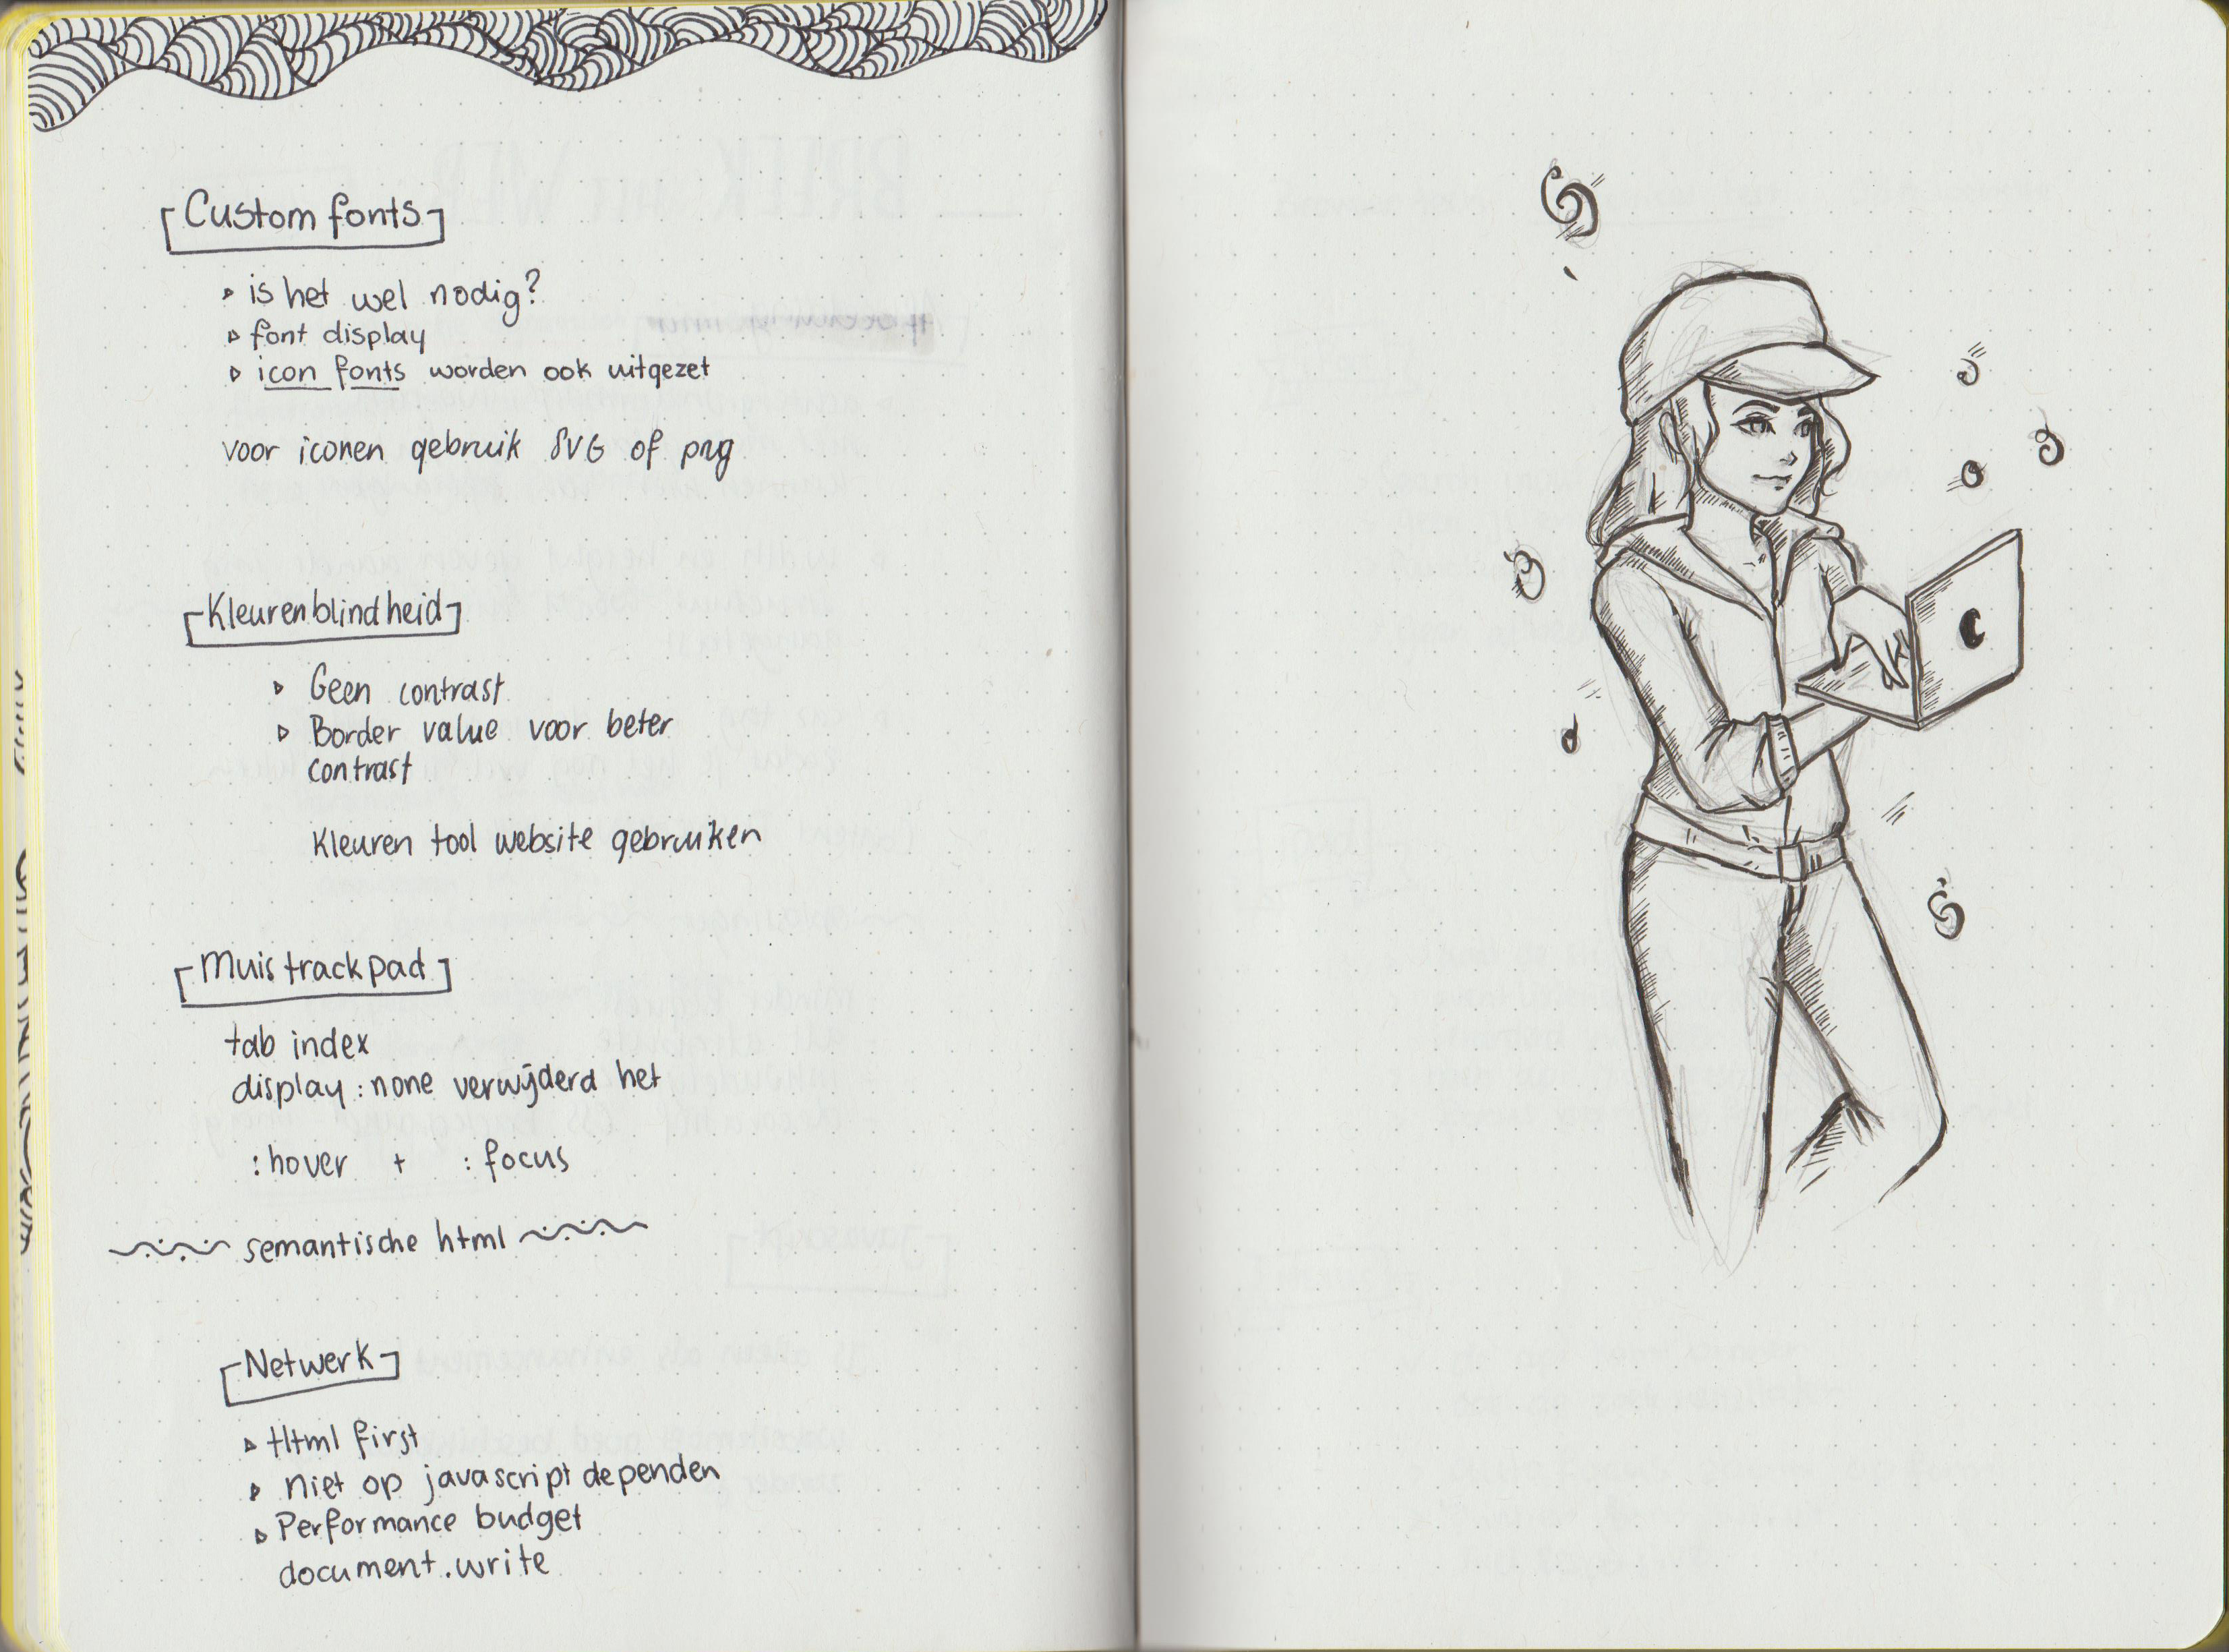 Custom fonts
is het wel nodig?
font display
icon fonts worden ook uitgezet
voor iconen gebruik SVG of png
Kleurenblindheid
Geen contrast
Border value voor beter
contrast
Kleuren tool website gebruiken
Muis trackpad
tab index
display: none verwijderd het
:hover + :focus
semantische html
Netwerk
Html first
niet op javascript dependen
Performance budget
document.write